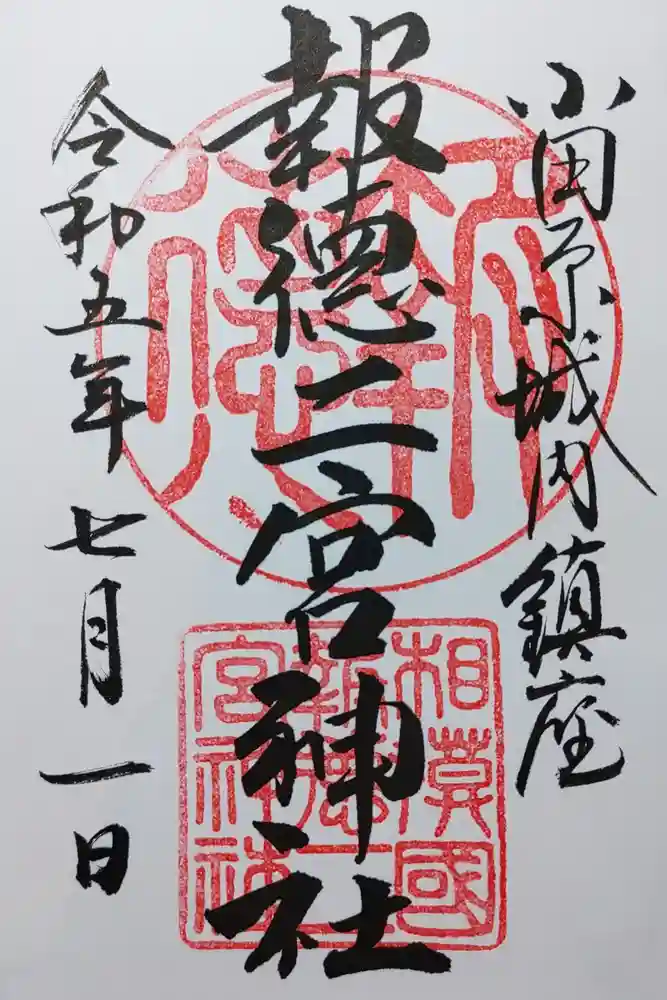 小田原城内鎮座
報徳二宮神社
令和五年七月一日
相莫國
報徳二
宮神社